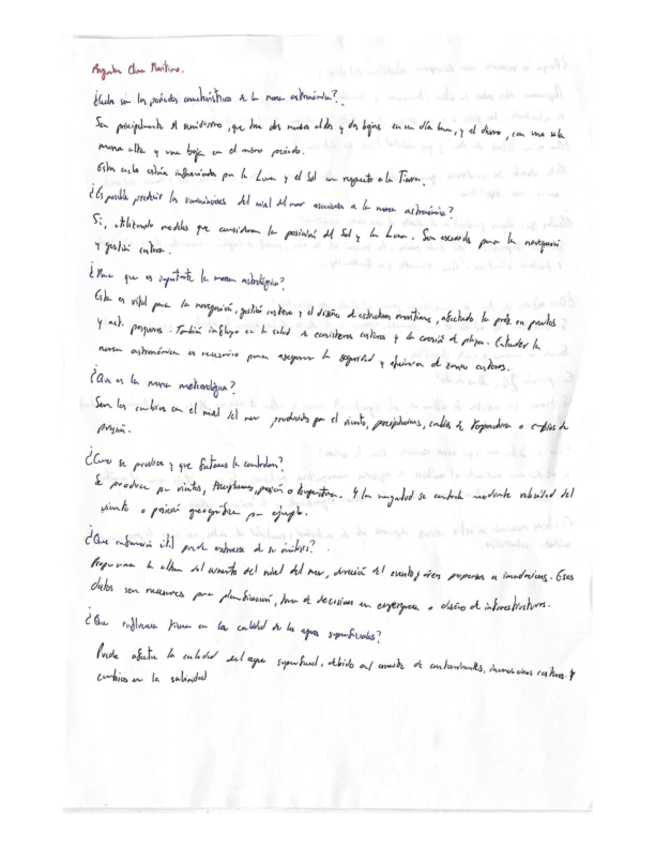 Preguntas Clima Marítimo.
¿Cuáles son los periodos característicos de la marea astronómica?
Son principalmente el semidiurno, que trae dos mareas altas y dos bajas en un día lunar, y el diurno, con una sola
marea alta y una baja en el mismo periodo.
Estos ciclos están influenciados por la Luna y el Sol con respecto a la Tierra.
¿Es posible predecir las variaciones del nivel del mar asociadas a la marea astronómica?
Si, utilizando modelos que consideran la posición del Sol y la Luna. Son esenciales para la navegación
y gestión costera.
¿Por que es importante la marea astrológica?
Esta es vital para la navegación, gestión costera y el diseño de estructuras marítimas, afectando la prof. en puertos
y act. pesqueras. También influye en la salud de ecosistemas costeros y la erosión de playas. Entender la
marea astronómica es necesario para asegurar la seguridad y eficiencia de zonas costeras.
¿Que es la marea meteorológica?
Son los cambios en el nivel del mar producidos por el viento, precipitaciones, cambios de temperatura o cambios de
presión.
¿Como se produce y que factores la controlan?
Se produce por vientos, presión o temperatura. Y la magnitud se controla mediante velocidad del
viento o posición geográfica por ejemplo.
¿Que información útil puede extraerse de su análisis?
Proporciona la altura del aumento del nivel del mar, duración del evento y áreas propensas a inundaciones. Esos
datos son necesarios para planificación, toma de decisiones en emergencias o diseño de infraestructuras.
¿Que influencia tienen en la calidad de las aguas superficiales?
Puede afectar la calidad del agua superficial, debido al arrastre de contaminantes, inundaciones costeras y
cambios en la salinidad